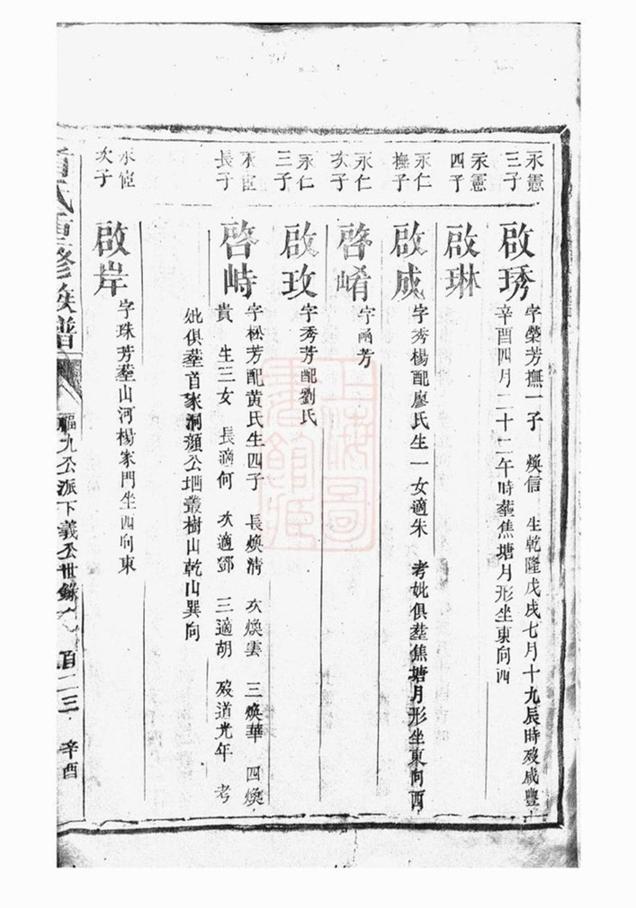 永憲
三子
啟琇
字榮芳撫一子 煥信 生乾隆戊戌七月十九辰時歿咸豐十
辛酉四月二十二午時塟焦塘月形坐東向西
永憲
四子
啟琳
永仁
撫子
啟成
字秀楊配廖氏生一女適朱 考妣俱塟焦塘月形坐東向西
永仁
次子
啓崤
字甬芳
永仁
三子
啟玫
字秀芳配劉氏
永宦
長子
啓峙
字松芳配黄氏生四子 長煥清 次煥雲 三煥華 四煥
貴 生三女 長適何 次適鄧 三適胡 歿道光年 考
妣俱塟首家洞
公
叢樹山乾山巽向
永宦
次子
啟岸
字珠芳塟山河楊家門坐西向東
氏重修族譜
福九公派下義公世錄
頁二三
辛酉